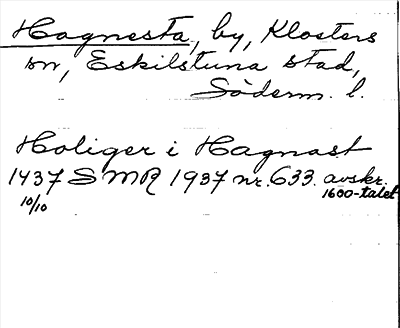 Hagnesta, by, Klosters
sn, Eskilstuna stad,
Söderm. l.
Holiger i Hagnast
1437 SMR 1937 nr. 633. avskr.
10/10 1600-talet